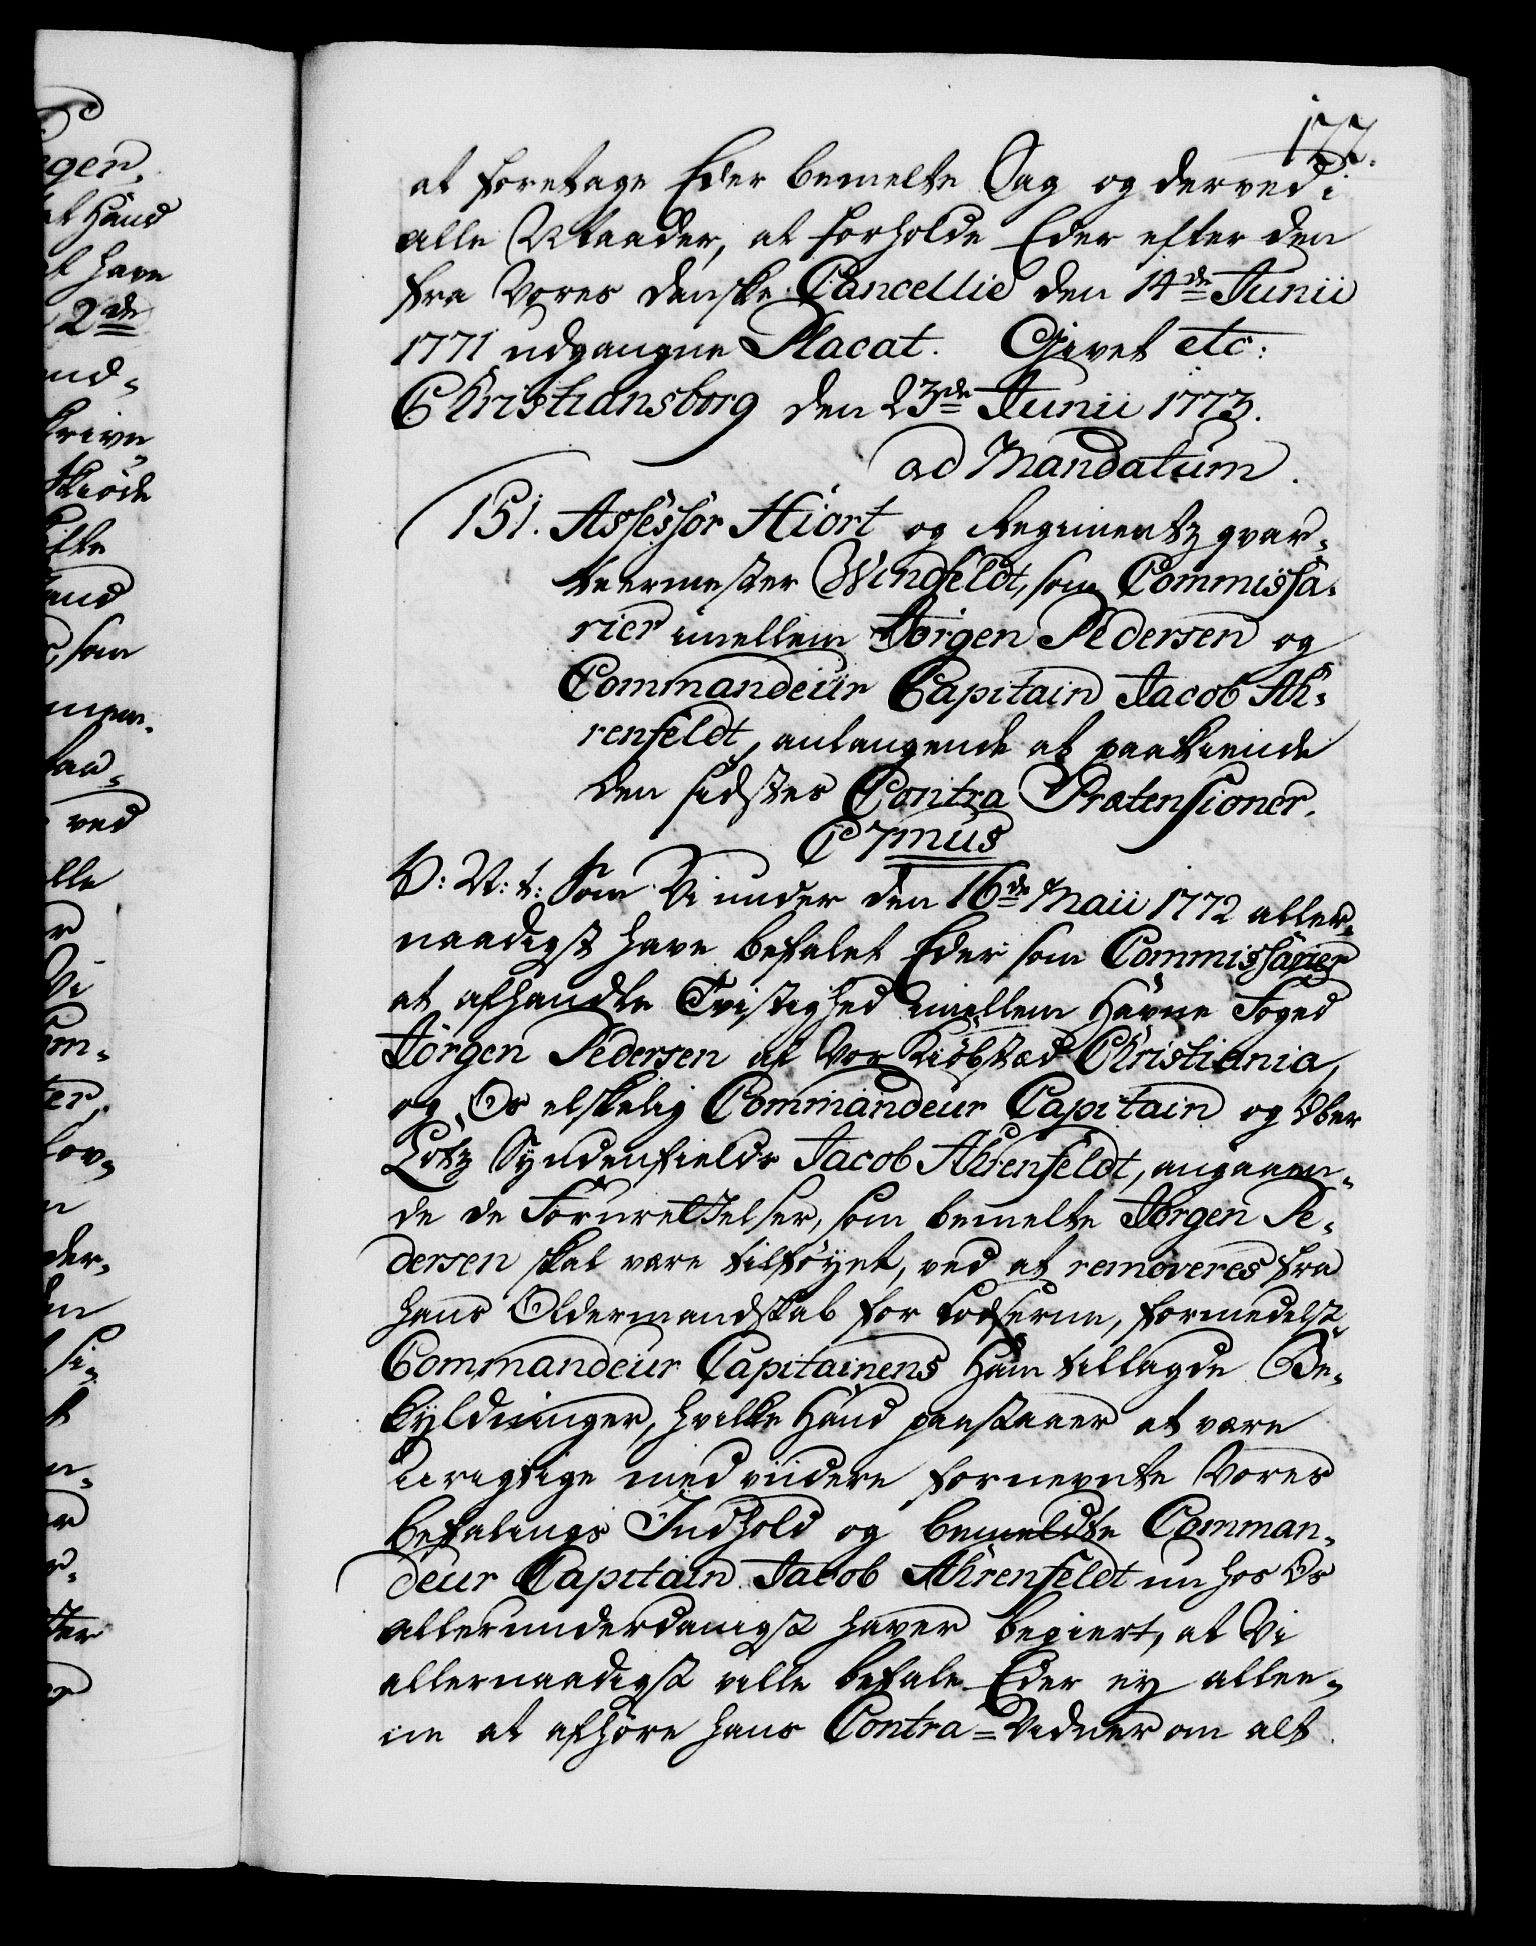 177.
at foretage Eder bemelte Sag og derved i
alle Maader, at forholde Eder efter den
fra Vores danske Cancellie den 14de Junii
1771 udgangne Placat. Givet etc:
Christiansborg den 23de Junii 1773.
ad Mandatum.
151. Assessor Hiort og Regimentz qvar-
teermester Windfeldt, som Commissa-
rier imellem Jørgen Pedersen og
Commandeur Capitain Jacob Ah-
renfeldt, anlangende at paakiende
den sidstes Contra Prætensioner.
C 7mus
V: N: t: Som Vi under den 16de Maii 1772 aller-
naadigst have befalet Eder som Commissarier
at afhandle Tvistighed imellem Havne Foged
Jørgen Pedersen af Vor Kiøbstæd Christiania,
og Os elskelig Commandeur Capitain og Ober
Lotz Syndenfields Jacob Ahrenfeldt, angaaen-
de de Fornrettelser, som bemelte Jørgen Pe-
dersen skal være tilføyet, ved at removeres fra
hans Oldermandskab for Lodserne, formedelst
Commandeur Capitainens ham tillagde Be-
skyldninger, hvilke hand paastaaer at være
urigtige med viidere fornevnte Vores
befalings Indhold og bemeldte Comman-
deur Capitain Jacob Ahrenfeldt nu hos Os
allerunderdanigst haver begiert, at Vi
allernaadigst ville befale Eder ey allee-
ne at afhøre hans Contra-Vidner om alt